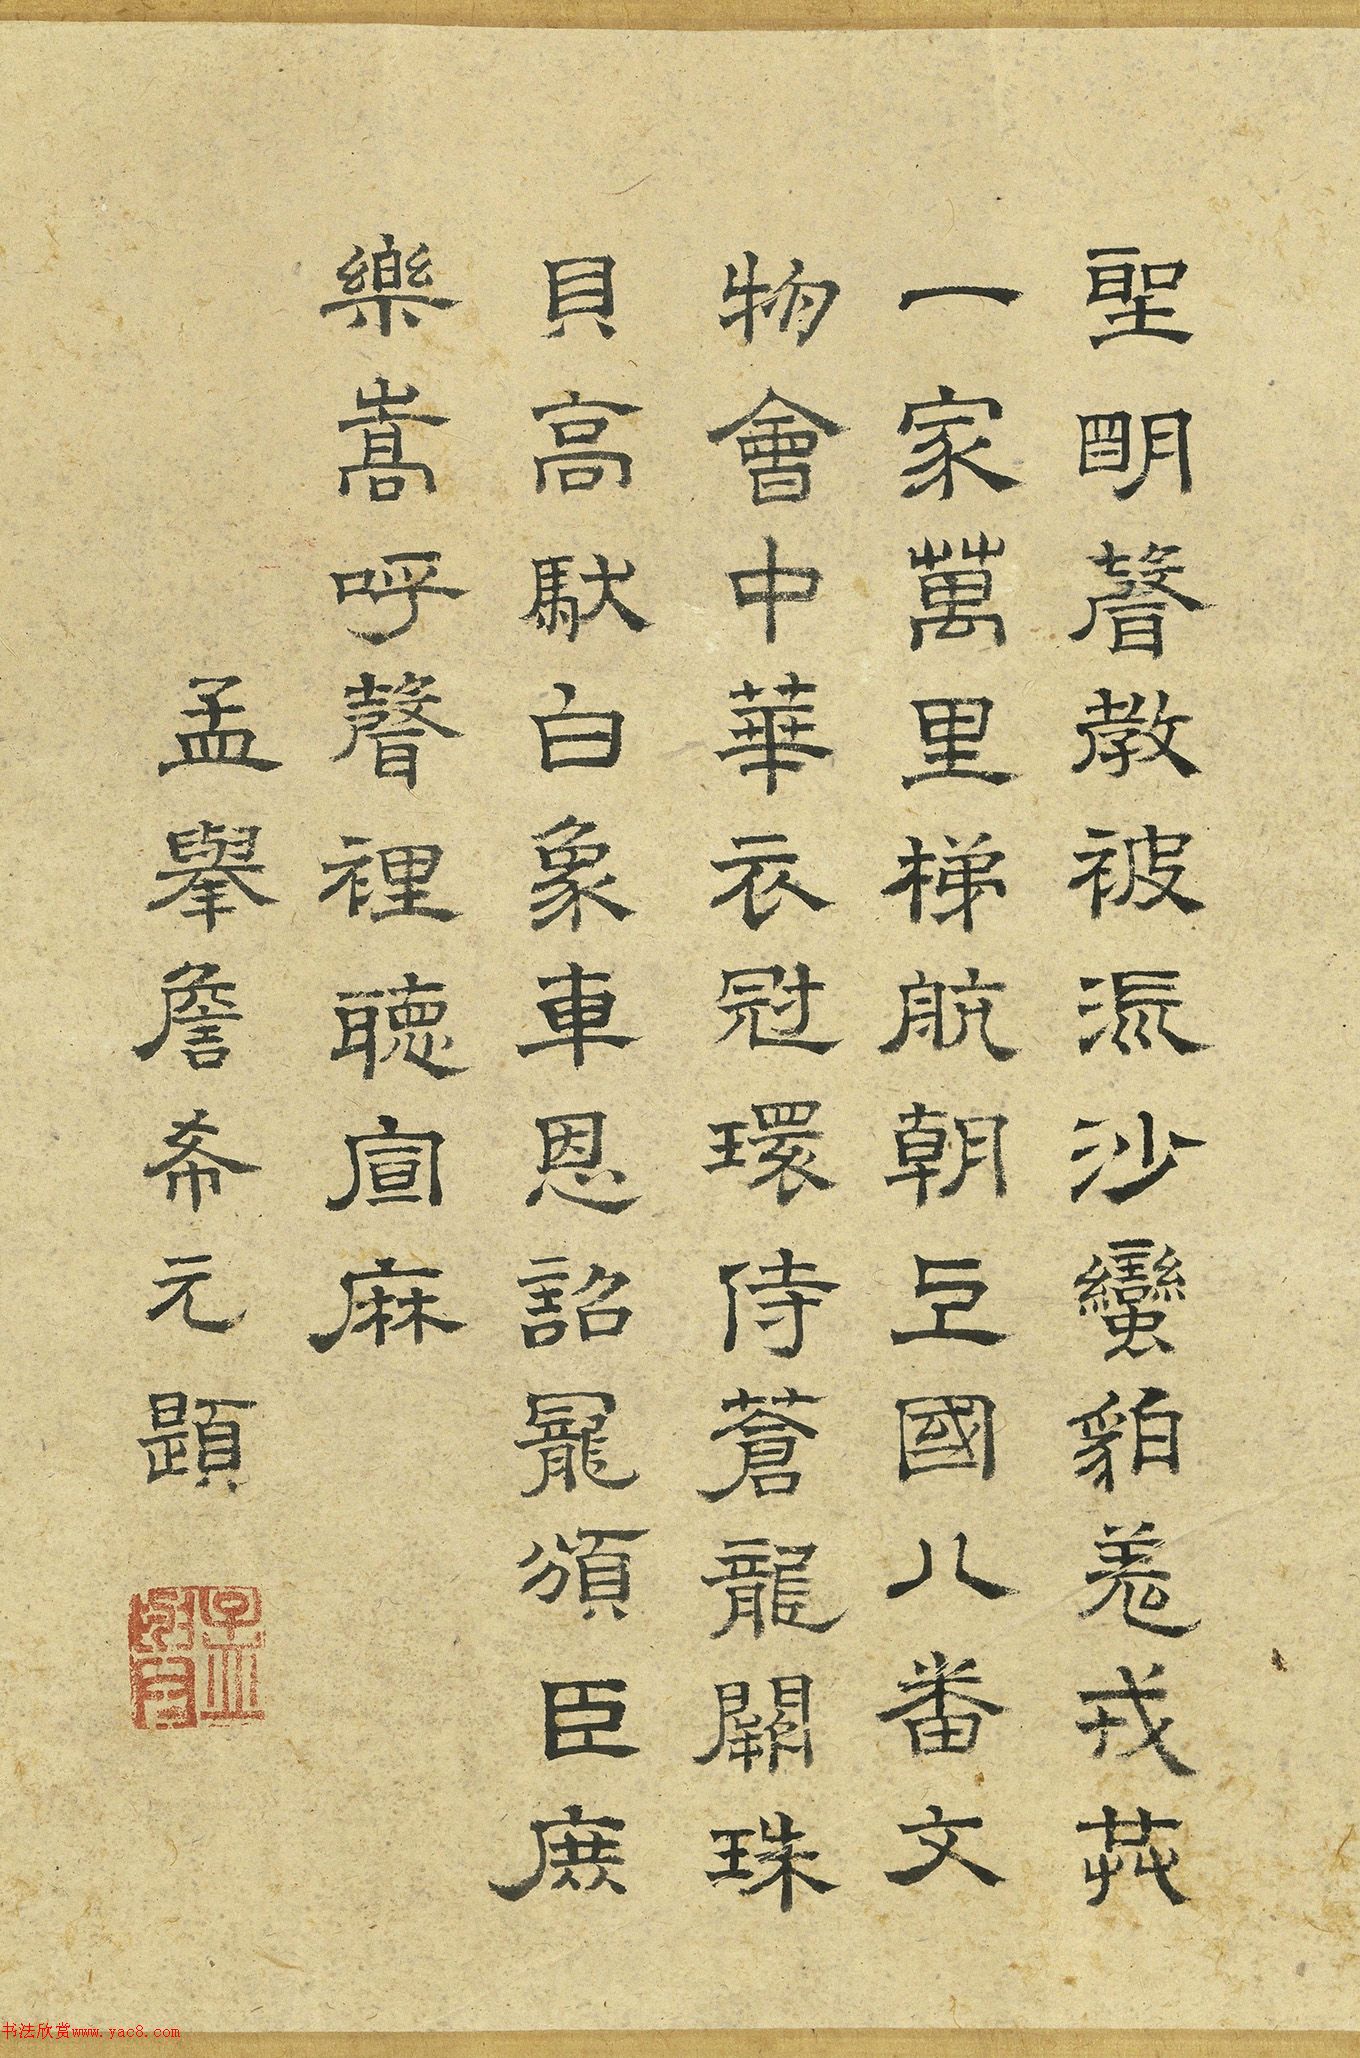 聖明聲教被流沙蠻貊羌戎共
一家萬里梯航朝上國八番文
物會中華衣冠環侍蒼龍闕珠
貝高馱白象車恩詔寵頒臣庶
樂嵩呼聲裡聽宣麻
孟舉詹希元題
书法欣赏www.yac8.com